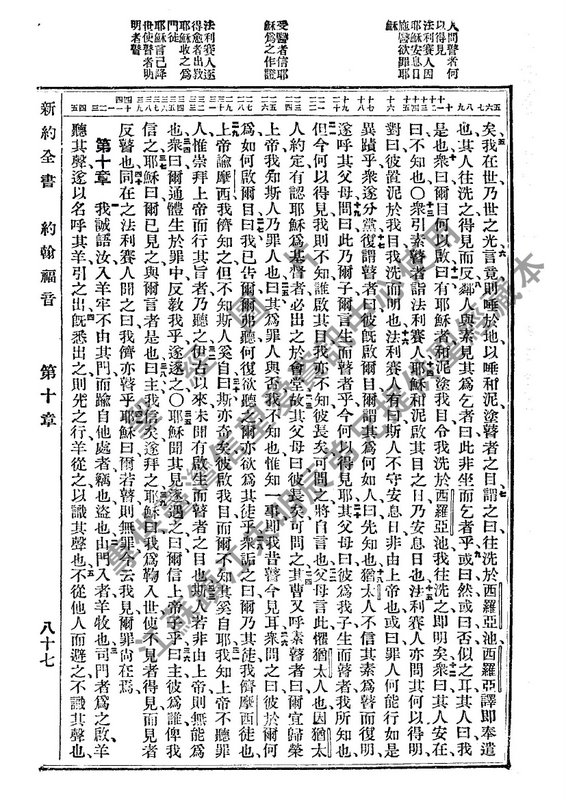 人問瞽者何
以得見
法利賽人因
耶穌安息日
施醫欲罪耶
穌
受醫者信耶
穌為之作證
法利賽人逐
得愈者出教
耶穌收之為
門徒
耶穌言己降
世使瞽者明
明者瞽
矣我在世乃世之光言竟則唾於地以唾和泥塗瞽者之目謂之曰往洗於西羅亞池西羅亞譯即奉遣
也其人往洗之得見而反鄰人與素見其為乞者曰此非坐而乞者乎或曰然或曰否似之耳其人曰我
是也眾曰爾目何以啟曰有耶穌者和泥塗我目令我洗於西羅亞池我往洗之即明矣眾曰其人安在
曰不知也〇眾引素瞽者詣法利賽人耶穌和泥啟其目之日乃安息日也法利賽人亦問其何以得明
對曰彼置泥於我目我洗而明也法利賽人有曰斯人不守安息日非由上帝也或曰罪人何能行如是
異蹟乎眾遂分黨復謂瞽者曰彼既啟爾目爾謂其為何如人曰先知也猶太人不信其素為瞽而復明
遂呼其父母問曰此乃爾子爾言生而瞽者乎今何以得見耶其父母曰彼為我子生而瞽者我所知也
但今何以得見我則不知誰啟其目我亦不知彼長矣可問之將自言也父母言此懼猶太人也因猶太
人約定有認耶穌為基督者必出之於會堂故其父母曰彼長矣可問之其曹又呼素瞽者曰爾宜歸榮
上帝我知斯人乃罪人也曰其為罪人與否我不知也惟知一事即我昔瞽今見耳眾問之曰彼於爾何
為如何啟爾目曰我已告爾爾弗聽何復欲聽之爾亦欲為其徒乎眾詬之曰爾乃其徒我儕摩西徒也
上帝諭摩西我儕知之但不知斯人奚自曰斯亦奇矣彼啟我目而爾不知其奚自耶我知上帝不聽罪
人惟崇拜上帝而行其旨者乃聽之伊古以來未聞有啟生而瞽者之目也斯人若非由上帝則無能為
也眾曰爾通體生於罪中反教我乎遂逐之〇耶穌聞其見逐遇之曰爾信上帝子乎曰主彼為誰俾我
信之耶穌曰爾已見之與爾言者是也曰主我信矣遂拜之耶穌曰我為鞫入世使不見者得見而見者
反瞽也同在之法利賽人聞之曰我儕亦瞽乎耶穌曰爾若瞽則無罪今云我見爾罪尚在焉
第十章 我誠語汝入羊牢不由其門而踰自他處者竊也盜也由門入者羊牧也司門者為之啟羊
聽其聲遂以名呼其羊引之出既悉出之則先之行羊從之以識其聲也不從他人而避之不識其聲也
新約全書 約翰福音 第十章 八十七